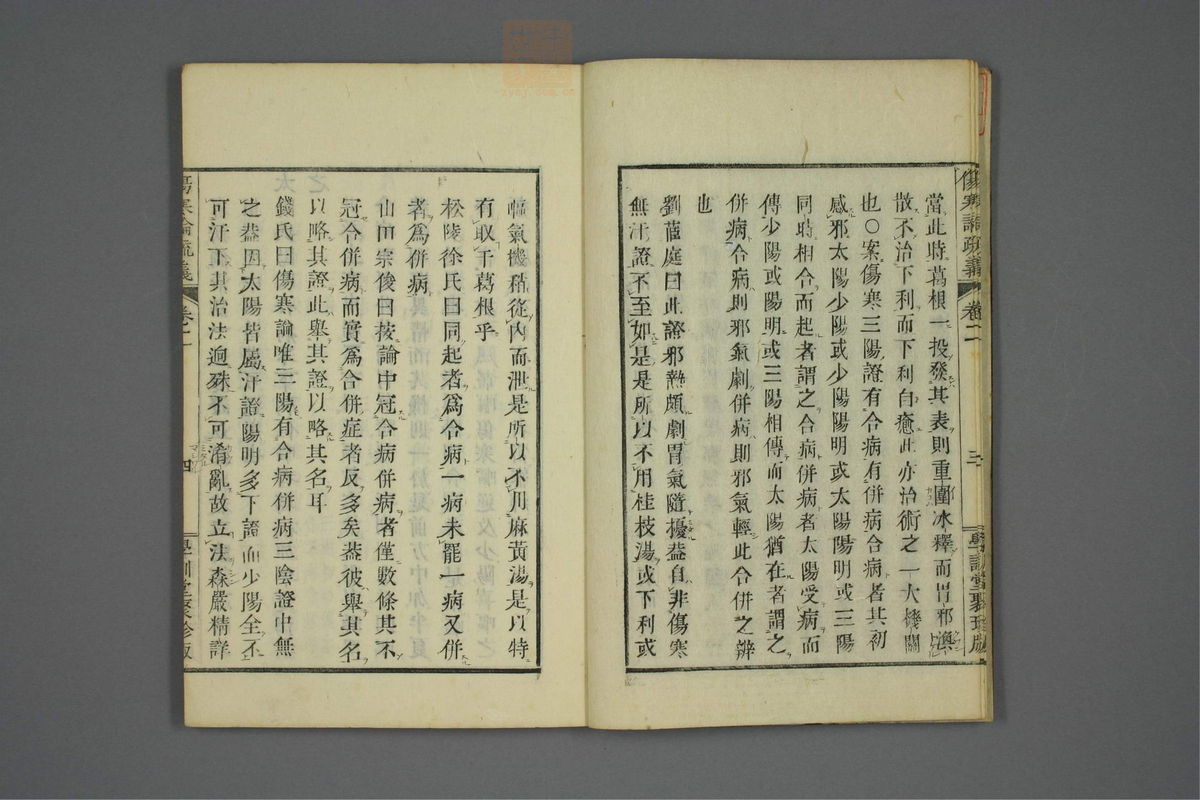 傷寒論疏義 卷二 三 學訓堂聚珍版
當此時葛根一投發其表則重圍冰釋而胃邪渙
散不治下利而下利自癒此亦治術之一大機關
也○案傷寒三陽證有合病有併病合病者其初
感邪太陽少陽或少陽陽明或太陽陽明或三陽
同時相合而起者謂之合病併病者太陽受病而
傳少陽或陽明或三陽相傳而太陽猶在者謂之
併病合病則邪氣劇併病則邪氣輕此合併之辨
也
劉蓲庭曰此證邪熱頗劇胃氣隨擾蓋自非傷寒
無汗證不至如是是所以不用桂枝湯或下利或
嘔氣機稍從內而泄是所以不用麻黃湯是以特
有取于葛根乎
松陵徐氏曰同起者爲合病一病未罷一病又併
者爲併病
山田宗俊曰按論中冠合病併病者僅數條其不
冠合併病而實爲合併症者反多矣蓋彼舉其名
以略其證此舉其證以略其名耳
錢氏曰傷寒論唯三陽有合病併病三陰證中無
之蓋因太陽皆屬汗證陽明多下證而少陽全不
可汗下其治法迥殊不可淆亂故立法森嚴精詳
傷寒論疏義 卷二 四 學訓堂聚珍版